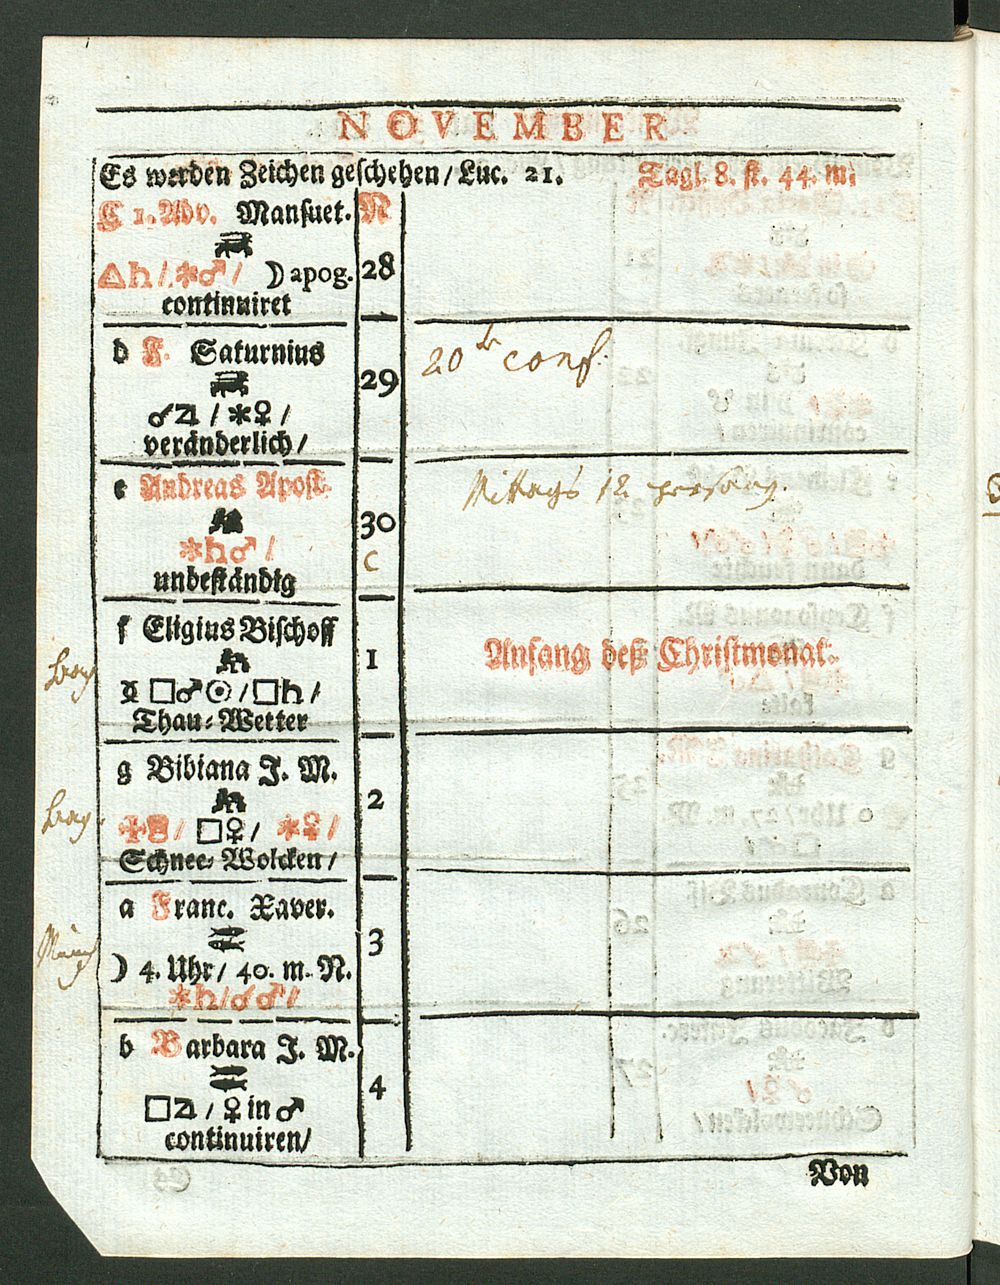 NOVEMBER
Es werden Zeichen geschehen / Luc. 21. Tagl. 8. st. 44. m.
C 1. Adv. Mansuet. N
△♄ / ✱♂ / ☽ apog. 28
continuiret
d F. Saturnius
29
20 conf.
♂♃ / ✱♀ /
veränderlich /
e Andreas Apost.
Mittags 12
30
✱♄♂ /
c
unbeständig
f Eligius Bischoff
1 Anfang deß Christmonat.
☿ □♂☉ / □♄ /
Thau-Wetter
g Bibiana J. M.
2
□♀ / ✱♀ /
Schnee-Wolcken /
a Franc. Xaver.
3
☽ 4. Uhr / 40. m. N.
✱♄ / ☌♂ /
b Barbara J. M.
4
□♃ / ♀ in ♂
continuiren /
Von